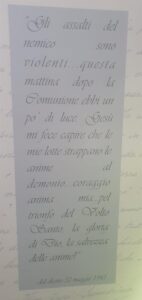 "Gli assalti del
nemico sono
violenti...questa
mattina dopo la
Comunione ebbi un
po' di luce. Gesù
mi fece capire che le
mie lotte strappano le
anime al
demonio...coraggio
anima mia...pel
trionfo del Volto
Santo, la gloria
di Dio, la salvezza
delle anime!"
dal diario 30 maggio 1942